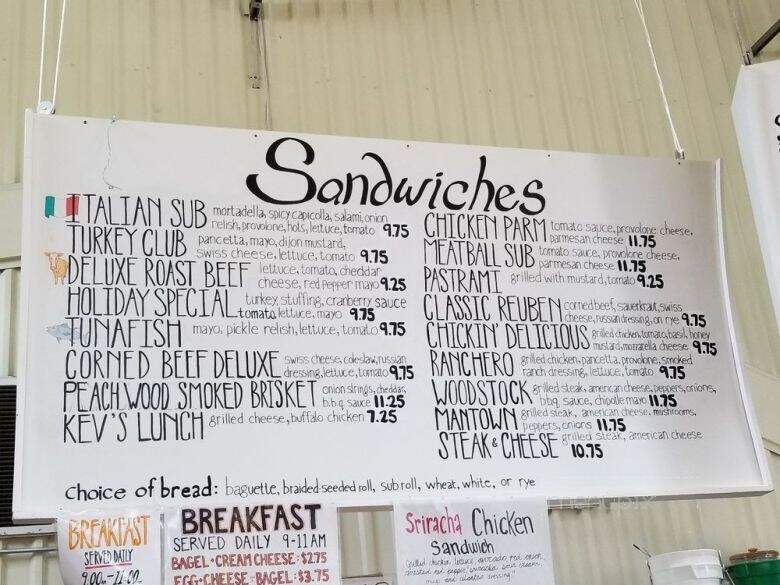 Sandwiches
ITALIAN SUB mortadella, spicy capicolla, salami, onion
relish, provolone, hots, lettuce, tomato 9.75
TURKEY CLUB pancetta, mayo, dijon mustard,
swiss cheese, lettuce, tomato 9.75
DELUXE ROAST BEEF lettuce, tomato, cheddar
cheese, red pepper mayo 9.25
HOLIDAY SPECIAL turkey, stuffing, cranberry sauce
tomato, lettuce, mayo 9.75
TUNAFISH mayo, pickle relish, lettuce, tomato 9.75
CORNED BEEF DELUXE swiss cheese, coleslaw, russian
dressing, lettuce, tomato 9.75
PEACHWOOD SMOKED BRISKET onion strings, cheddar,
b.b.q. sauce 11.25
KEV'S LUNCH grilled cheese, buffalo chicken 7.25
CHICKEN PARM tomato sauce, provolone cheese,
parmesan cheese 11.75
MEATBALL SUB tomato sauce, provolone cheese,
parmesan cheese 11.75
PASTRAMI grilled with mustard, tomato 9.25
CLASSIC REUBEN corned beef, sauerkraut, swiss
cheese, russian dressing, on rye 9.75
CHICKIN' DELICIOUS grilled chicken, tomato, basil, honey
mustard, mozzarella cheese 9.75
RANCHERO grilled chicken, pancetta, provolone, smoked
ranch dressing, lettuce, tomato 9.75
WOODSTOCK grilled steak, american cheese, peppers, onions,
bbq sauce, chipotle mayo 11.75
MANTOWN grilled steak, american cheese, mushrooms,
peppers, onions 11.75
STEAK & CHEESE grilled steak, american cheese
10.75
choice of bread: baguette, braided-seeded roll, sub roll, wheat, white, or rye
BREAKFAST
SERVED DAILY
9:00-11:00
BREAKFAST
SERVED DAILY 9-11AM
BAGEL·CREAM CHEESE: $2.75
EGG·CHEESE·BAGEL: $3.75
Sriracha Chicken
Sandwich
grilled chicken, lettuce, avocado, red onion,
roasted red pepper, sriracha sour cream,